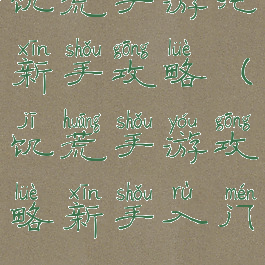 饥荒手游
xīn shǒu gōng lüè
新手攻略(
jī huāng shǒu yóu gōng
饥荒手游攻
lüè xīn shǒu rù mén
略新手入门